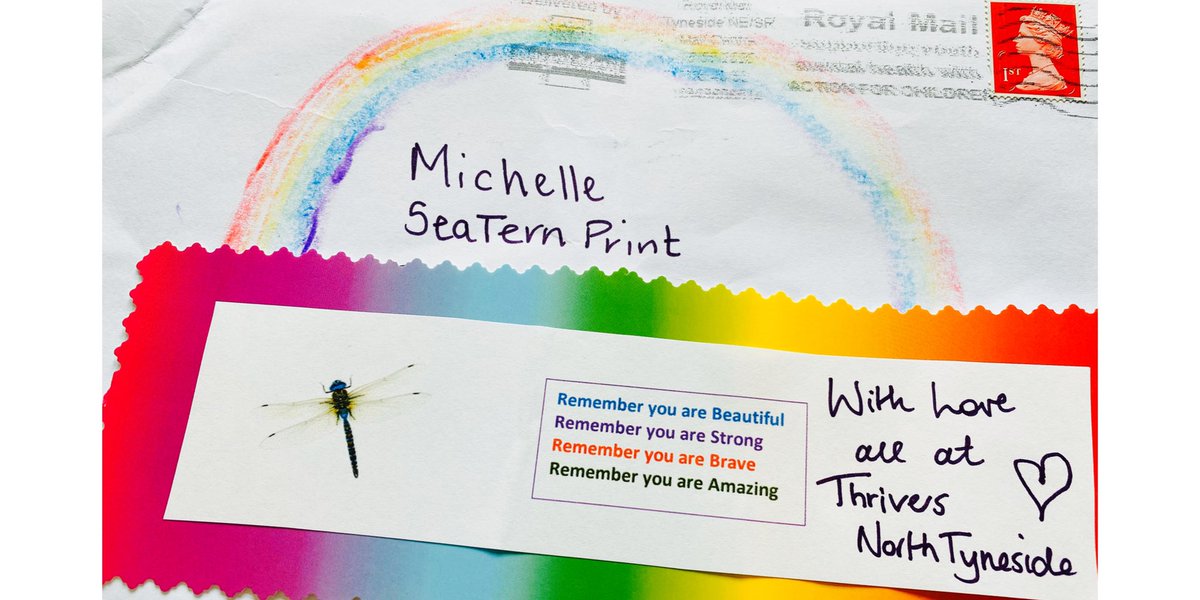 Delivered by
Royal Mail
Tyneside NE/SR
Royal Mail
supporting youth
mental health with
ACTION FOR CHILDREN
1ST
Michelle
SeaTern Print
Remember you are Beautiful
Remember you are Strong
Remember you are Brave
Remember you are Amazing
With Love
all at
Thrivers
North Tyneside